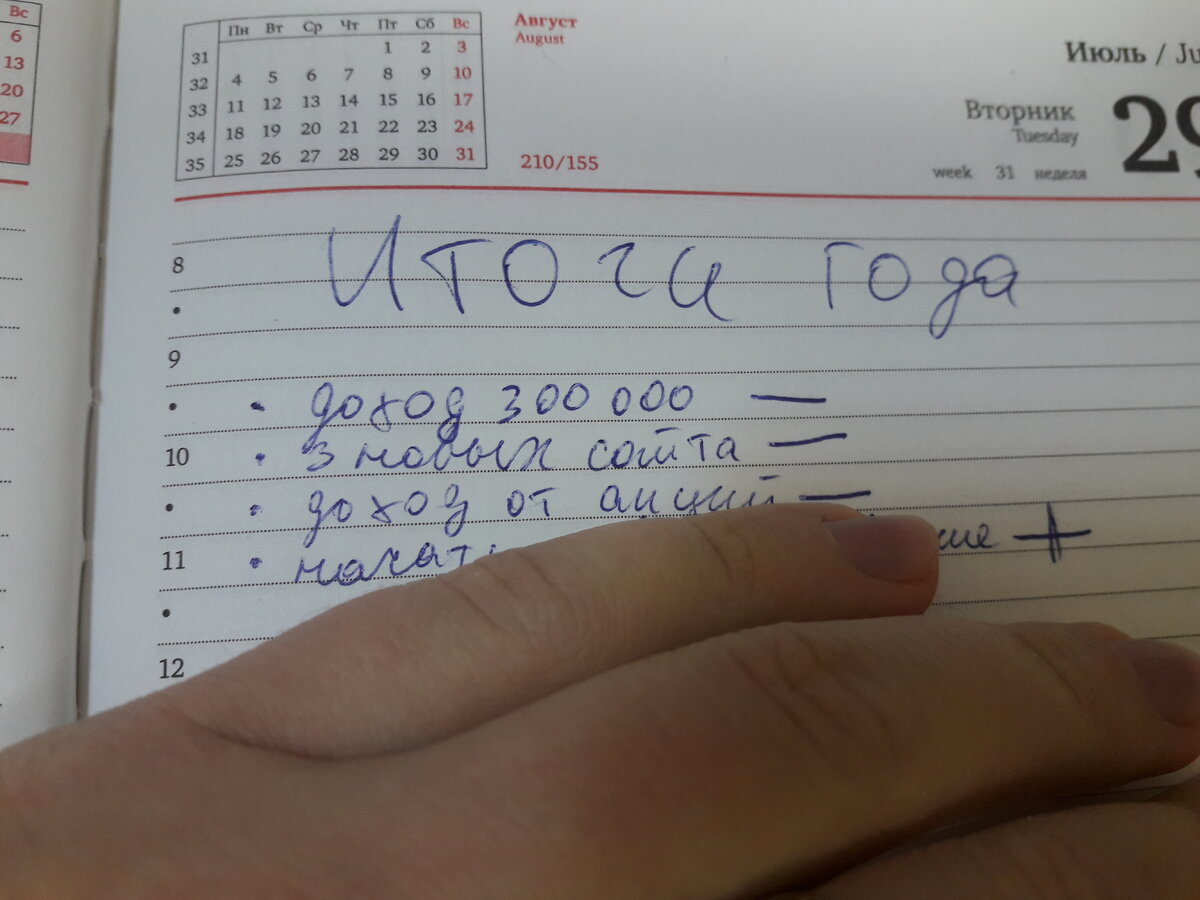 Вс
6
13
20
27
Пн Вт Ср Чт Пт Сб Вс
31 1 2 3
32 4 5 6 7 8 9 10
33 11 12 13 14 15 16 17
34 18 19 20 21 22 23 24
35 25 26 27 28 29 30 31
Август
August
210/155
Июль /
Вторник
Tuesday
29
week 31 неделя
Итоги года
8
9
• доход 300 000 —
10 • 3 новых сайта —
• доход от акций —
11 • +
12